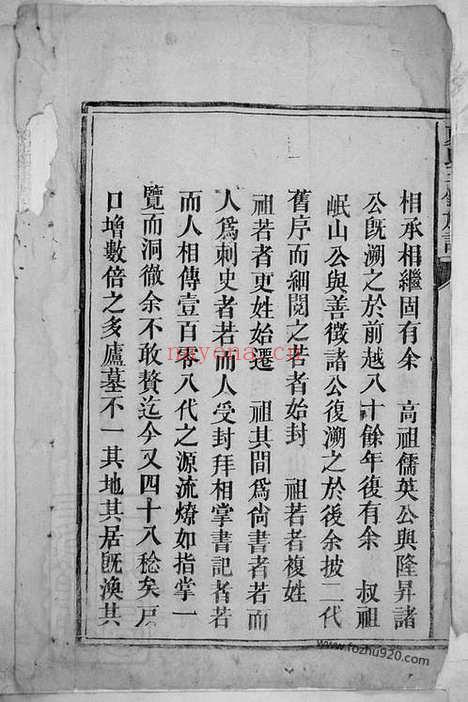 相承相繼固有余　高祖儒英公與隆昇諸
公既溯之於前越八十餘年復有余　叔祖
岷山公與善徵諸公復溯之於後余披二代
舊序而細閱之若者始封　祖若者複姓
祖若者更姓始遷　祖其間爲尙書者若而
人爲刺史者若而人受封拜相掌書記者若
而人相傳壹百零八代之源流燎如指掌一
覽而洞徹余不敢贅迄今又四十八稔矣戸
口增數倍之多廬墓不一其地其居旣渙其
nayena.cn
www.fozhu920.com